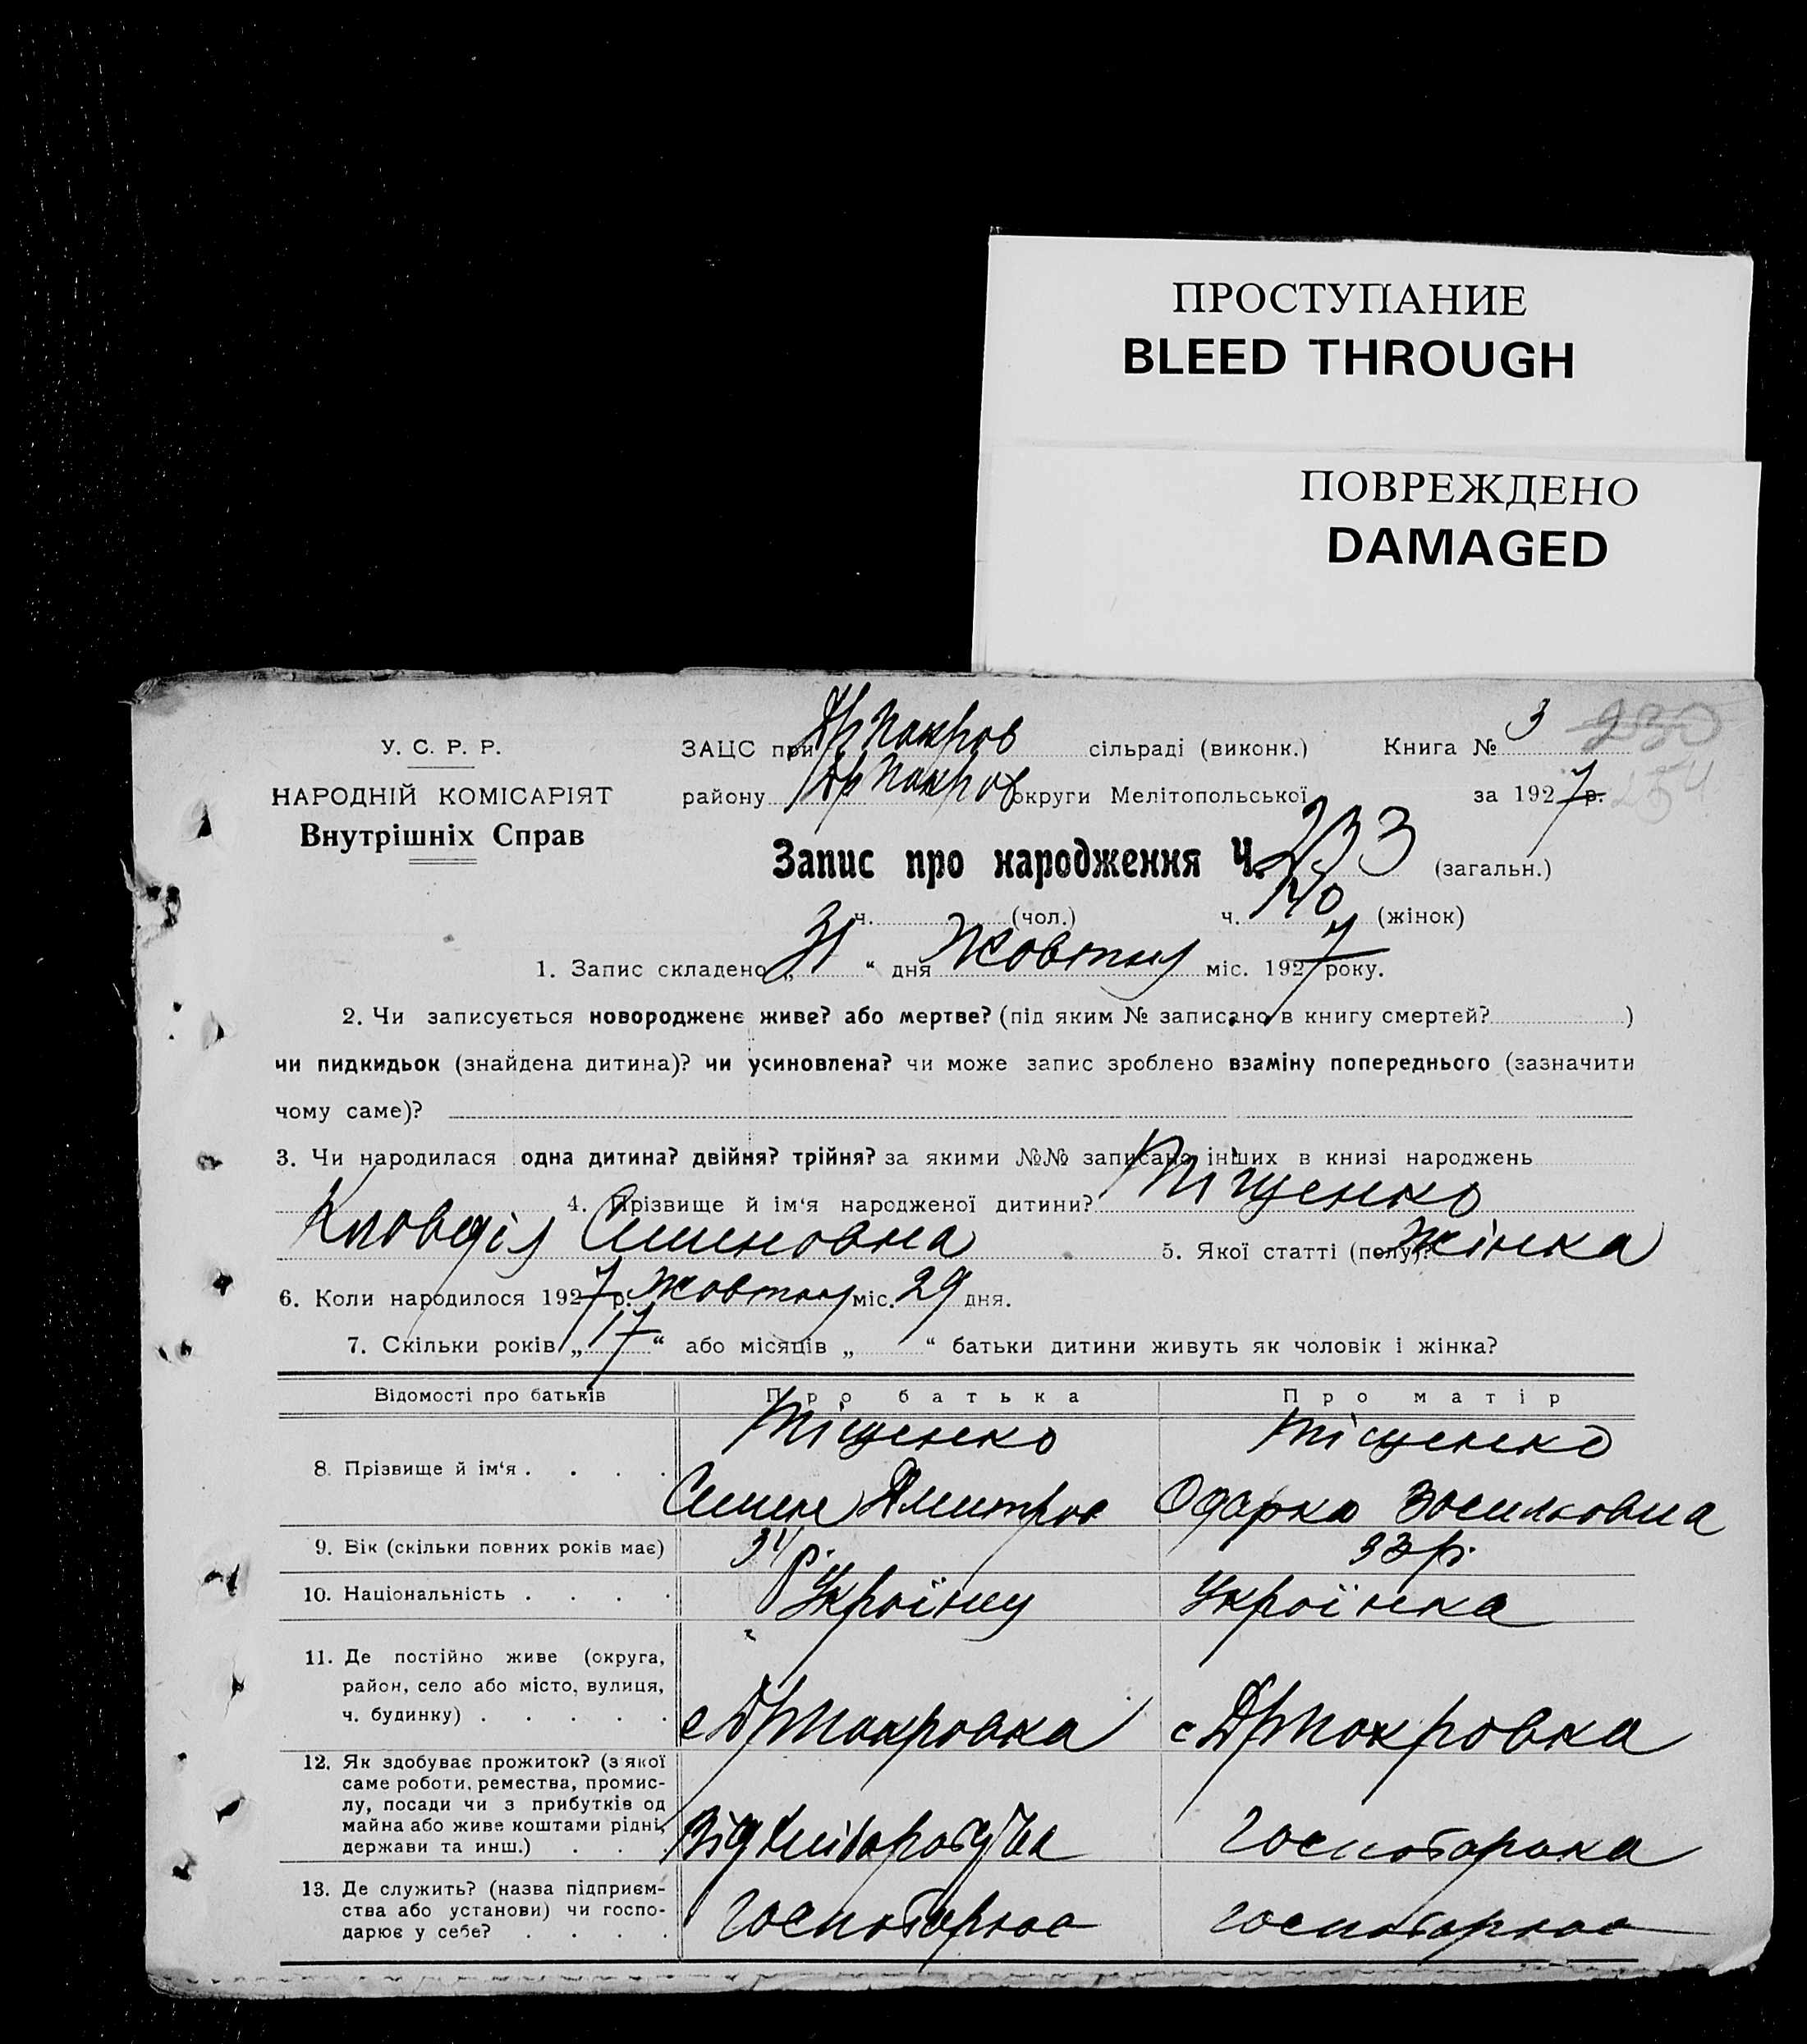 ПРОСТУПАНИЕ
BLEED THROUGH
ПОВРЕЖДЕНО
DAMAGED
У. С. Р. Р.
НАРОДНІЙ КОМІСАРІЯТ
Внутрішніх Справ
ЗАЦС при Др Покров сільраді (виконк.) Книга № 3 230
району Др Покров округи Мелітопольської за 1927 р. 254
Запис про народження Ч. 233 (загальн.)
ч. (чол.) ч. 140 (жінок)
1. Запис складено „ 31 “ дня Жовтня міс. 1927 року.
2. Чи записується новороджене живе? або мертве? (під яким № записано в книгу смертей? )
чи пидкидьок (знайдена дитина)? чи усиновлена? чи може запис зроблено взаміну попереднього (зазначити
чому саме)?
3. Чи народилася одна дитина? двійня? трійня? за якими №№ записано інших в книзі народжень
4. Прізвище й ім‘я народженої дитини? Тіщенко
Кловдія Семеновна 5. Якої статті (полу)? Жінка
6. Коли народилося 1927 р. Жовтня міс. 29 дня.
7. Скільки років „ 17 “ або місяців „ “ батьки дитини живуть як чоловік і жінка?
Відомості про батьків Про батька Про матір
8. Прізвище й ім‘я . . . . Тіщенко Тіщенко
Семен Дмитров Одарка Василовна
9. Вік (скільки повних років має) р. 33 р.
10. Національність . . . . Україну Українка
11. Де постійно живе (округа,
район, село або місто, вулиця,
ч. будинку) . . . . . с Др Покровка с Др Покровка
12. Як здобуває прожиток? (з якої
саме роботи, ремества, промис-
лу, посади чи з прибутків од
майна або живе коштами рідні,
держави та инш.) . . . Від Господарка
13. Де служить? (назва підприєм-
ства або установи) чи госпо-
дарює у себе? . . . . Господарює господарює